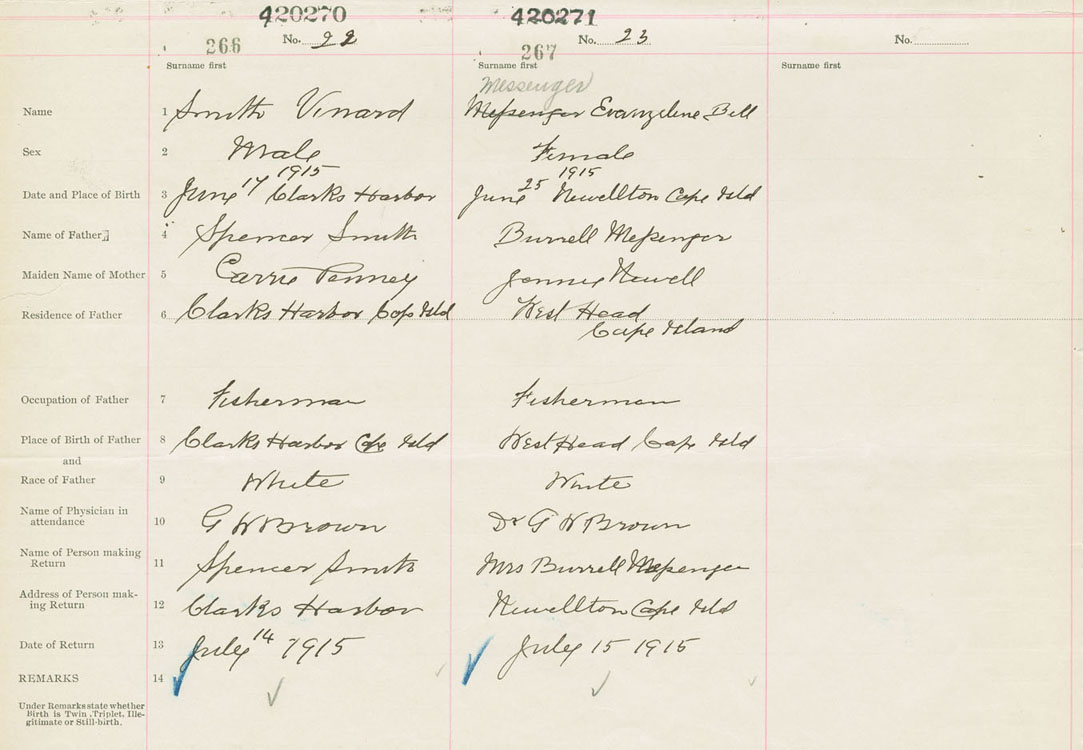 420270 420271
266 No. 22 267 No. 23 No.
Surname first Surname first Surname first
Messenger
Name 1 Smith Vinard Messenger Evangelene Bell
Sex 2 Male Female
Date and Place of Birth 3 June 17 1915 Clarks Harbor June 25 1915 Newellton Cape Isld
Name of Father 4 Spencer Smith Burrell Messenger
Maiden Name of Mother 5 Carrie Penney Jennie Newell
Residence of Father 6 Clarks Harbor Cape Isld West Head
Cape Island
Occupation of Father 7 Fisherman Fisherman
Place of Birth of Father 8 Clarks Harbor Cape Isld West Head Cape Isld
and
Race of Father 9 White White
Name of Physician in
attendance 10 G W Brown Dr G W Brown
Name of Person making
Return 11 Spencer Smith Mrs Burrell Messenger
Address of Person mak-
ing Return 12 Clarks Harbor Newellton Cape Isld
Date of Return 13 July 14 1915 July 15 1915
REMARKS 14
Under Remarks state whether
Birth is Twin, Triplet, Ille-
gitimate or Still-birth.